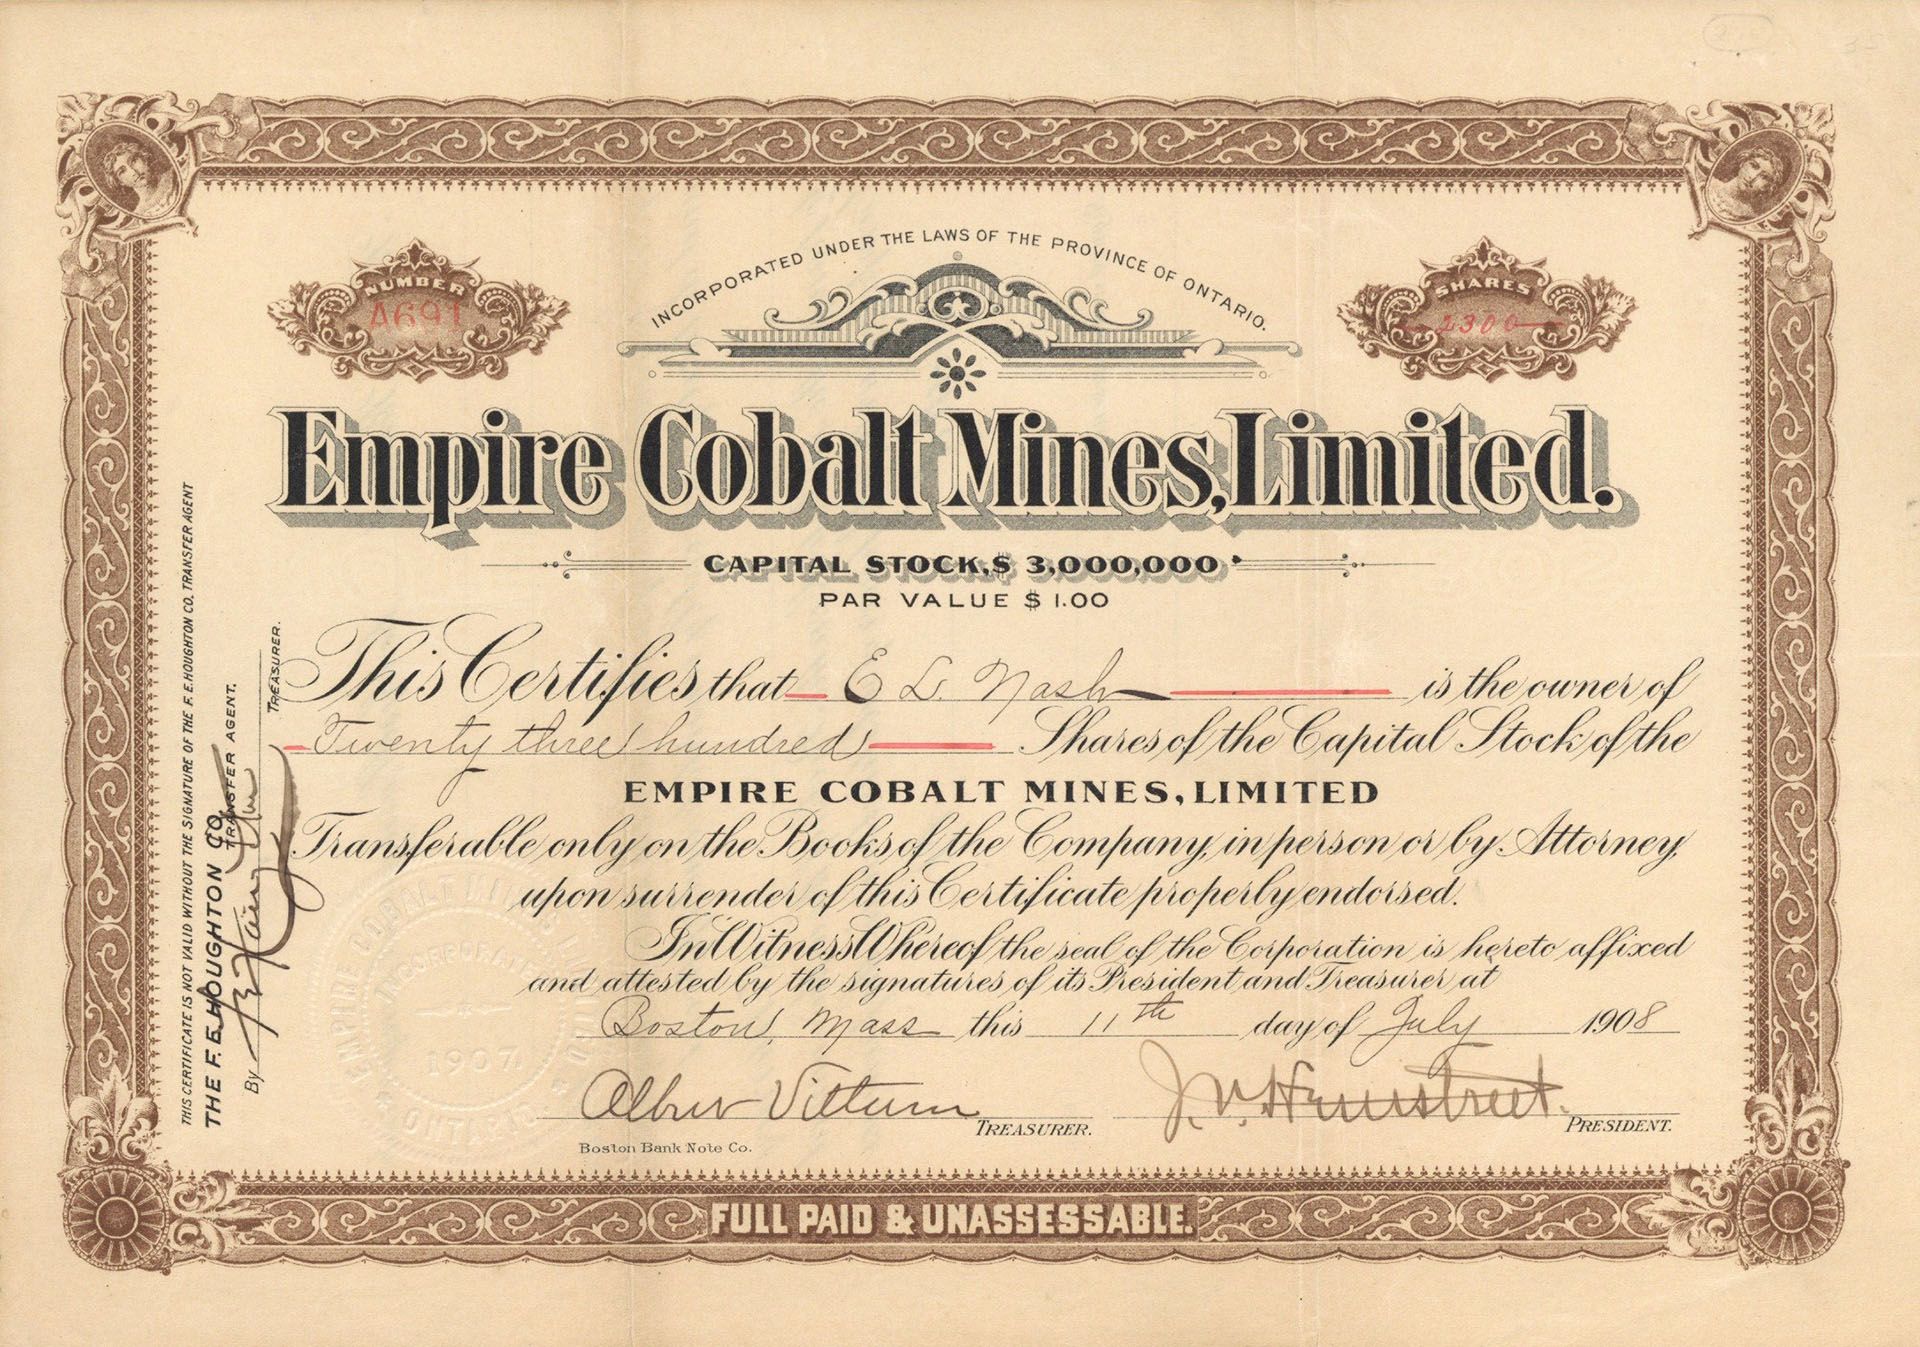 INCORPORATED UNDER THE LAWS OF THE PROVINCE OF ONTARIO.
NUMBER
A691
SHARES
2300
Empire Cobalt Mines, Limited.
CAPITAL STOCK, $ 3,000,000
PAR VALUE $ 1.00
This Certifies that E L. Nash is the owner of
Twenty three hundred Shares of the Capital Stock of the
EMPIRE COBALT MINES, LIMITED
Transferable only on the Books of the Company, in person or by Attorney,
upon surrender of this Certificate properly endorsed.
In Witness Whereof the seal of the Corporation is hereto affixed
and attested by the signatures of its President and Treasurer at
Boston, Mass this 11th day of July 1908
TREASURER.
J. V. Hemstreet.
PRESIDENT.
Boston Bank Note Co.
FULL PAID & UNASSESSABLE.
THIS CERTIFICATE IS NOT VALID WITHOUT THE SIGNATURE OF THE F. E. HOUGHTON CO, TRANSFER AGENT
THE F. E. HOUGHTON CO.
TRANSFER AGENT.
By
TREASURER.
EMPIRE COBALT MINES LIMITED
INCORPORATED
1907
ONTARIO